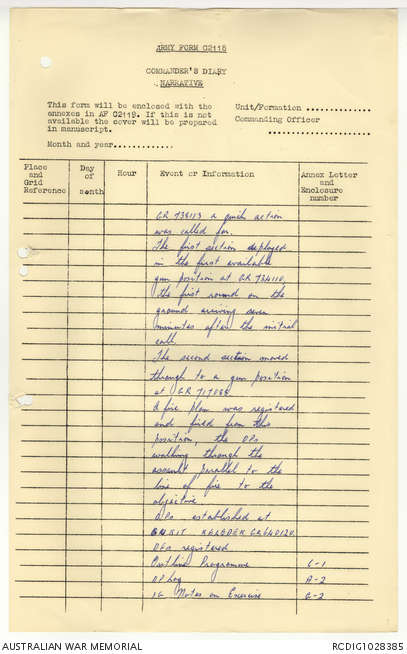 ARMY FORM C2118
COMMANDER'S DIARY
NARRATIVE
This form will be enclosed with the
annexes in AF C2119. If this is not
available the cover will be prepared
in manuscript.
Unit/Formation .............
Commanding Officer
....................
Month and year.............
Place and Grid Reference
Day of month
Hour
Event or Information
Annex Letter and Enclosure number
GR 738113 a quick action
was called for.
The first section deployed
in the first available
gun position at GR 734110,
the first round on the
ground arriving seven
minutes after the initial
call.
The second section moved
through to a gun position
at GR 717088
A fire plan was registered
and fired from this
position, the OPs
walking through the
assault parallel to the
line of fire to the
objective.
OPs established at
BUKIT GR 640120.
DFs registered
Outline Programme G-1
OP Log A-2
IG Notes on Exercise G-2
AUSTRALIAN WAR MEMORIAL
RCDIG1028385